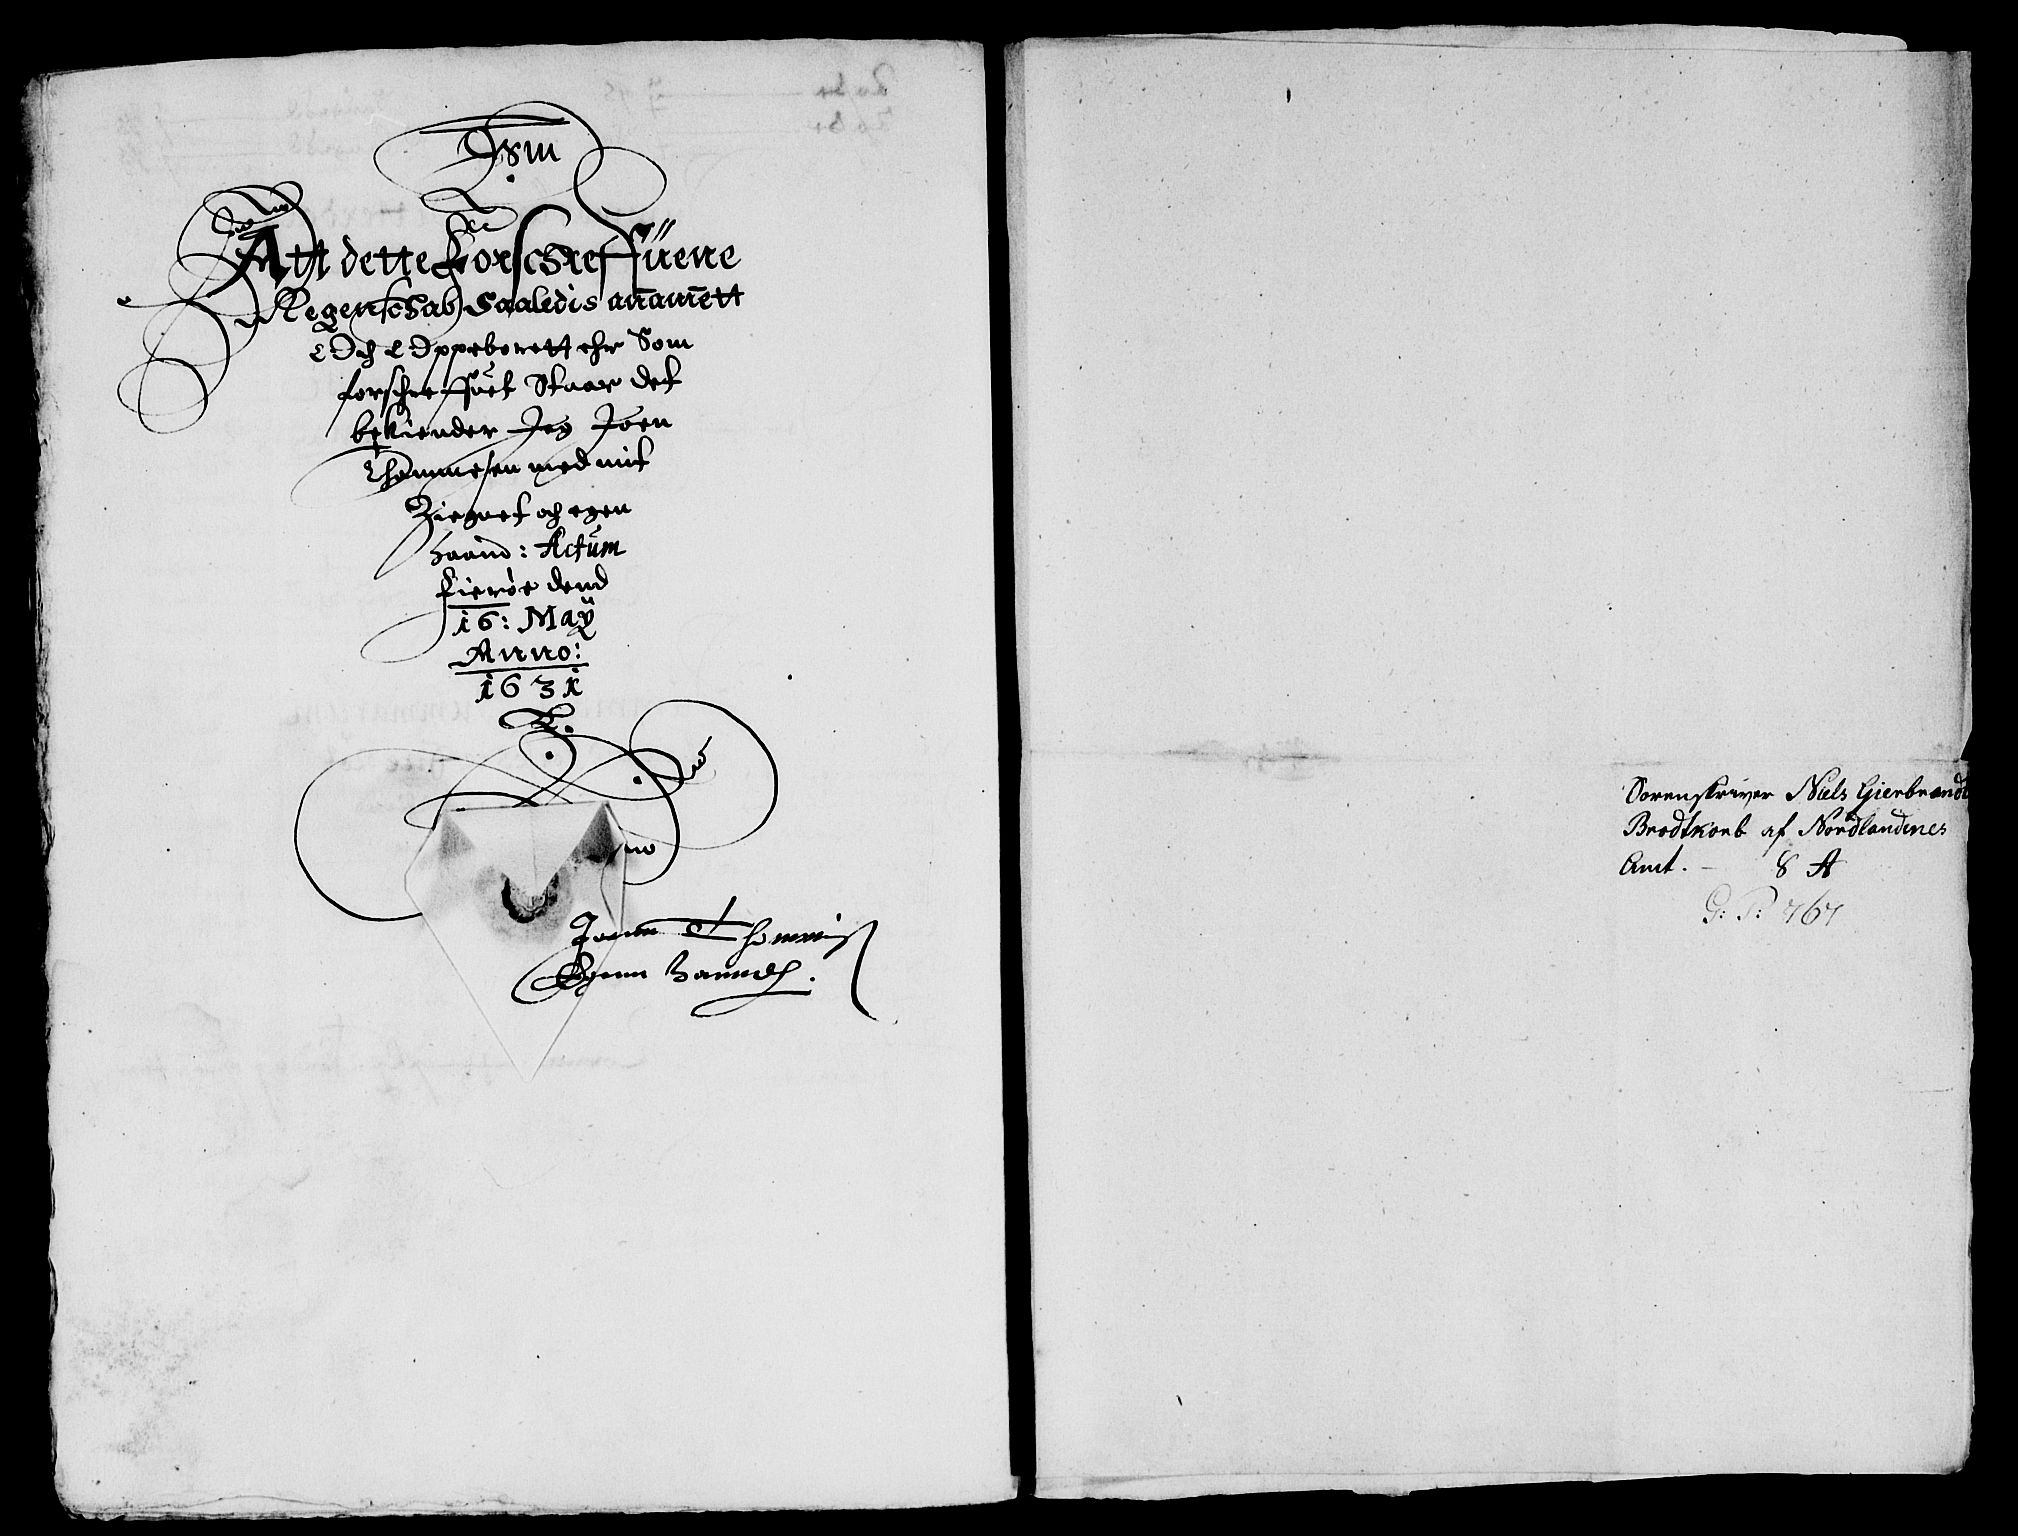 Att dette Forschreffuene
Regenschab Saaledis anamett
Och Oppeborett ehr Som
forschreffuet Staar det
bekiender Jeg Joen
Thommesen med mit
Ziegnet och egen
Haand: Actum
Kierøe dend
16: Maÿ
Anno:
1631
Joenn Thommis
Egenn Hannd.
Sorenskriver Niels Gierbrandt
Brodtkorb af Nordlandenes
Amt. - 8 A
G: P: 767